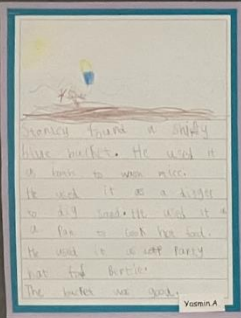 Stanley found a shiny
blue bucket. He used it
a bath to wash mice.
He used it as a digger
to dig sand. He used it
a pan to cook hot food.
He used it a fancy
hat for Bertie.
The bucket was good.
Yasmin A